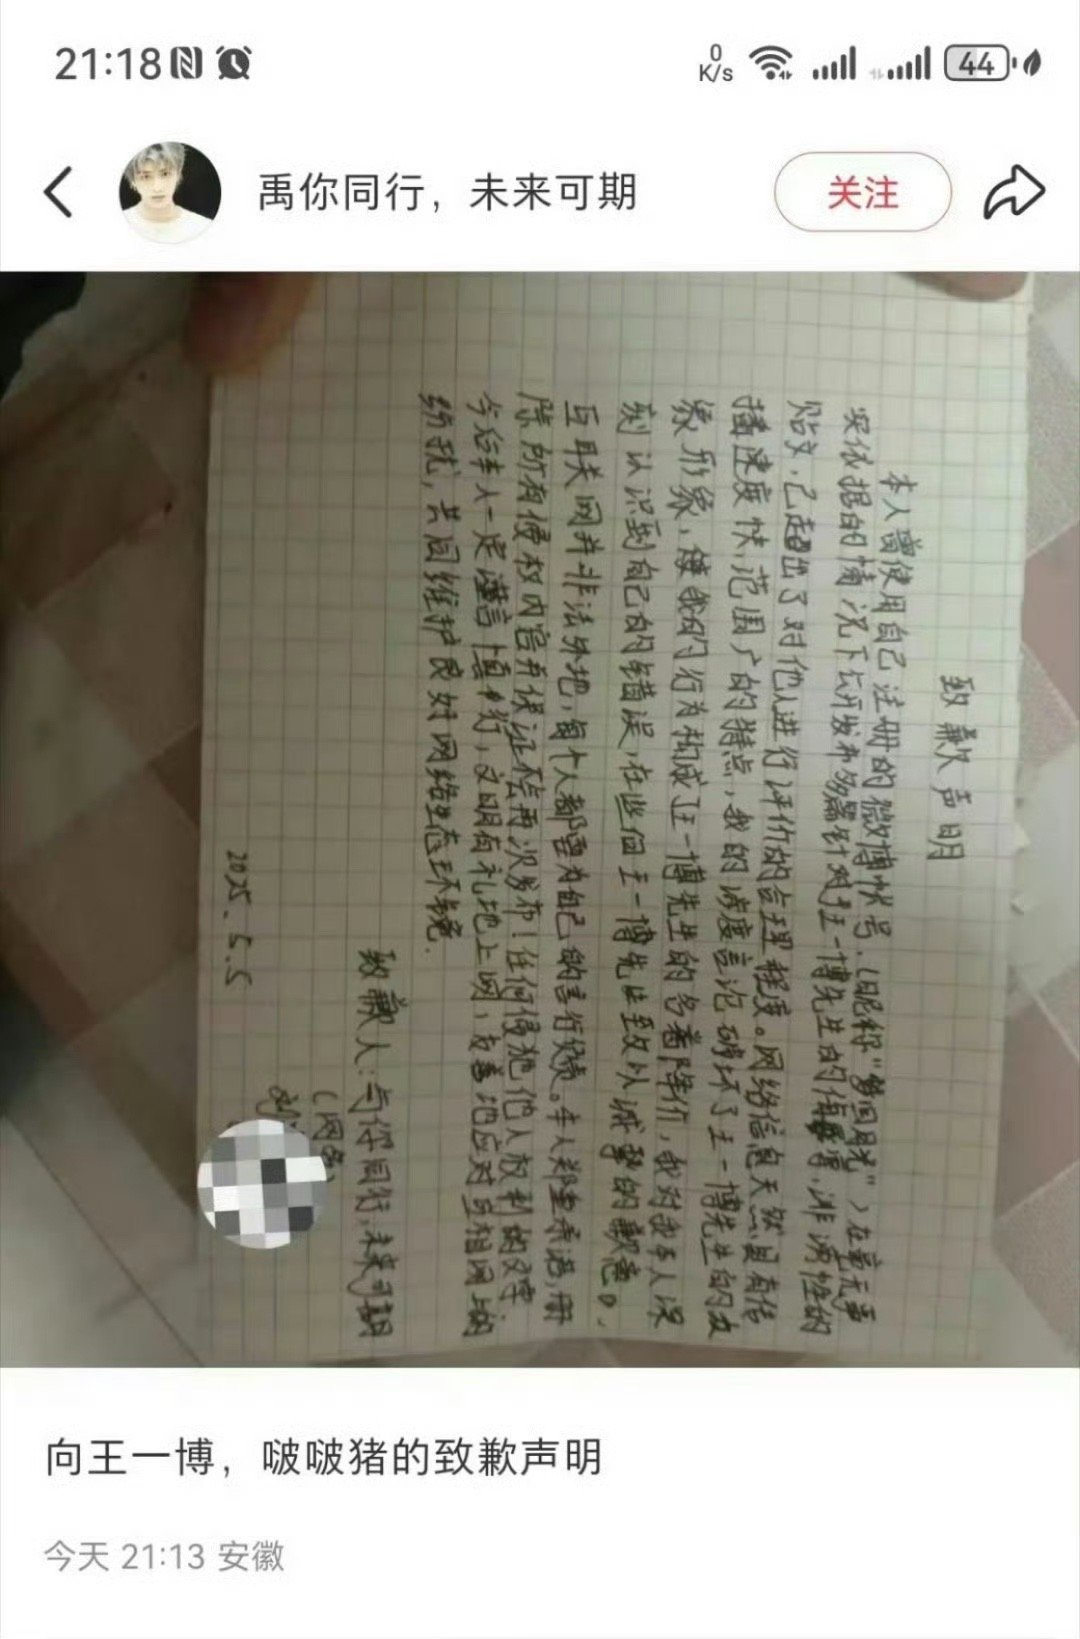 21:18
0
K/s
44
禹你同行，未来可期
关注
致歉声明
本人曾使用自己注册的微博帐号（昵称“梦回月光”）在毫无事
实依据的情况下公开发布多篇针对王一博先生的侮辱，诽谤性的
贴文，已超出了对他人进行评价的合理程度。网络信息天然具有传
播速度快，范围广的特点，我的过度言论破坏了王一博先生的
象形象，使我的行为构成王一博先生的名誉降价，我对我本人深
刻认识到自己的错误，在此向王一博先生致以诚挚的歉意。
互联网并非法外地，每个人都要为自己的言行负责。本人郑重承诺，删
除所有侵权内容并保证不再次发布！任何侵犯他人权利的文字
今后本人一定谨言慎行，文明有礼地上网，友善地应对互相网上的
纷扰，共同维护良好网络生态环境。
致歉人：与你同行，未来可期
（网名）
2025.5.5
向王一博，啵啵猪的致歉声明
今天 21:13 安徽